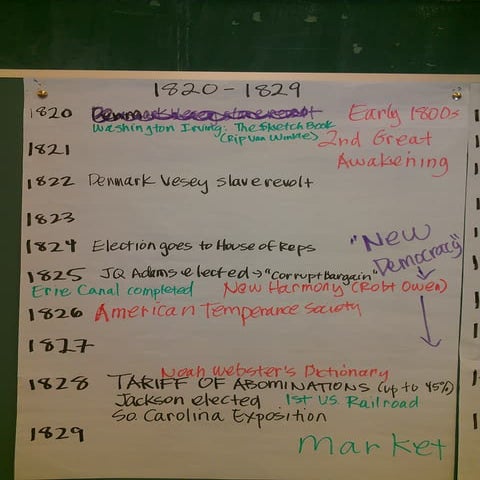 1820-1829
1820 Denmark Vesey slave revolt
Washington Irving: The Sketch Book
(Rip Van Winkle)
Early 1800s
2nd Great
Awakening
1821
1822 Denmark Vesey slave revolt
1823
1824 Election goes to House of Reps
"New
Democracy"
1825 JQ Adams elected → "Corrupt Bargain"
Erie Canal completed New Harmony (Robt Owen)
1826 American Temperance Society
1827
Noah Webster's Dictionary
1828 TARIFF OF ABOMINATIONS (up to 45%)
Jackson elected 1st U.S. Railroad
So. Carolina Exposition
1829
Market